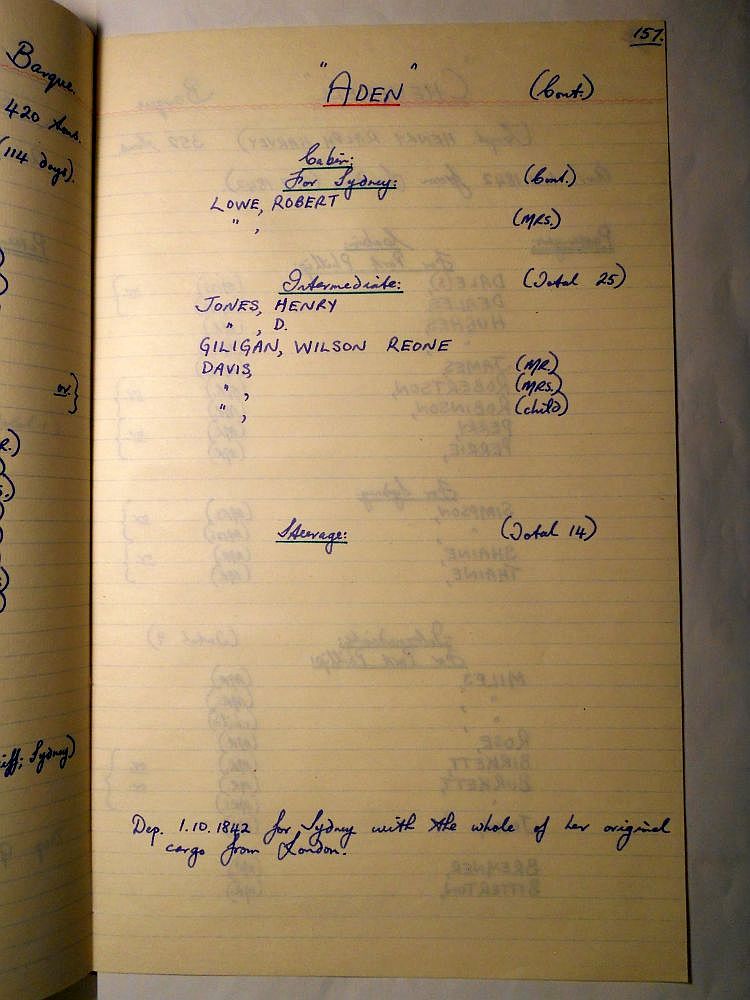 Barque.
420 tons.
(114 days).
or}
R.)
S.)
iff; Sydney)
157.
"ADEN" (Cont.)
Cabin:
For Sydney: (Cont.)
LOWE, ROBERT
" , (MRS.)
Intermediate: (Total 25)
JONES, HENRY
" , D.
GILIGAN, WILSON REONE
DAVIS, (MR.)
" , (MRS.)
" , (child)
Steerage: (Total 14)
Dep. 1.10.1842 for Sydney with the whole of her original
cargo from London.